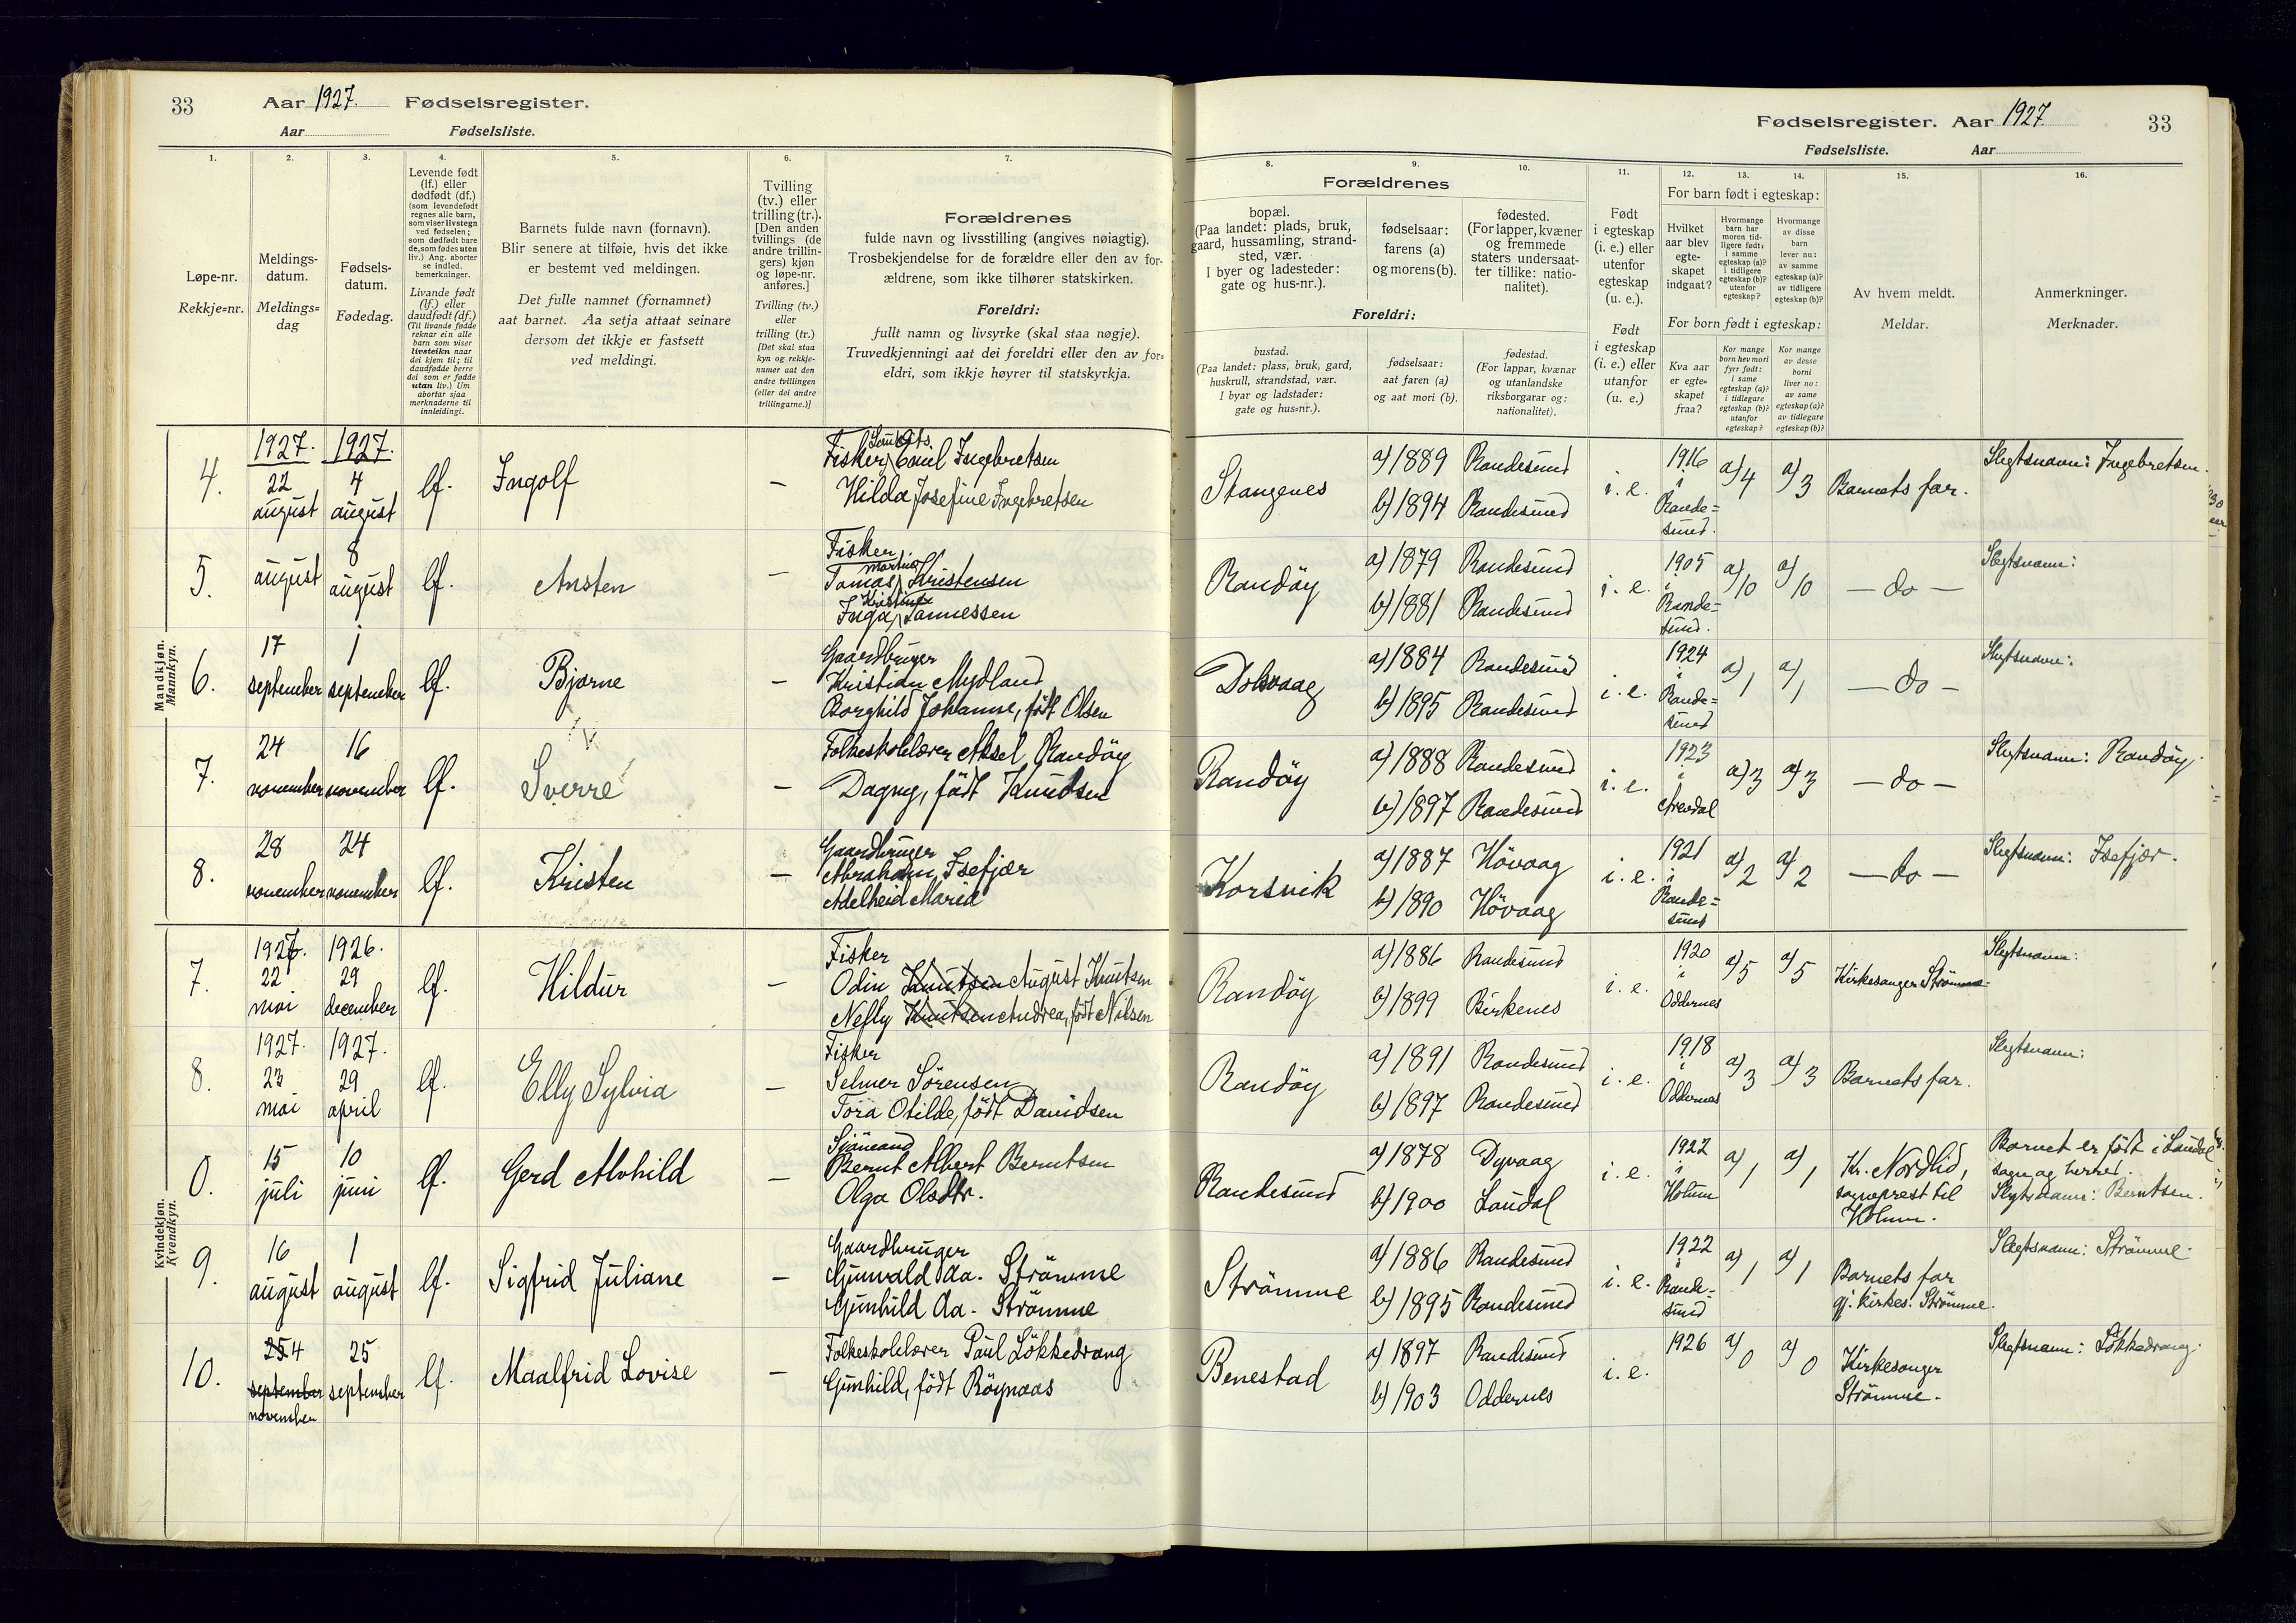 33 Aar 1927. Fødselsregister.
Aar Fødselsliste.
1. 2. 3. 4. 5. 6. 7.
Løpe-nr.
Rekkje=nr.
Meldings-
datum.
Meldings=
dag
Fødsels-
datum.
Fødedag.
Levende født
(lf.) eller
dødfødt (df.)
(som levendefødt
regnes alle barn,
som viser livstegn
ved fødselen;
som dødfødt bare
de, som fødes uten
liv.) Ang. aborter
se indled.
bemerkninger.
Livande født
(lf.) eller
daudfødt (df.)
(Til livande fødde
reknar ein alle
barn som viser
livsteikn naar
dei kjem til; til
daudfødde berre
dei som er fødde
utan liv.) Um
abortar sjaa
merknaderne til
innleidingi.
Barnets fulde navn (fornavn).
Blir senere at tilføie, hvis det ikke
er bestemt ved meldingen.
Det fulle namnet (fornamnet)
aat barnet. Aa setja attaat seinare
dersom det ikkje er fastsett
ved meldingi.
Tvilling
(tv.) eller
trilling (tr.).
[Den anden
tvillings (de
andre trillin-
gers) kjøn
og løpe-nr.
anføres.]
Tvilling (tv.)
eller
trilling (tr.)
[Det skal staa
kyn og rekkje-
numer aat den
andre tvillingen
(eller dei andre
trillingarne.)]
Forældrenes
fulde navn og livsstilling (angives nøiagtig).
Trosbekjendelse for de forældre eller den av for-
ældrene, som ikke tilhører statskirken.
Foreldri:
fullt namn og livsyrke (skal staa nøgje).
Truvedkjenningi aat dei foreldri eller den av for=
eldri, som ikkje høyrer til statskyrkja.
Mandkjøn.
Mannkyn.
1927. 1927.
4. 22 august 4 august lf. Ingolf –
Fisker Emil Ingebretsen
Hilda Josefine Ingebretsen
5. august 8 august lf. Ansten –
Fisker.
Martin
Tomas Kristensen
Kristine
Inga Tannessen
6. 17 september 1 september lf. Bjarne –
Gaardbruger
Kristian Mydland
Borghild Johanne, født Olsen
7. 24 november 16 november lf. Sverre –
Folkeskolelærer Aksel Randöy
Dagny, født Knudsen
8. 28 november 24 november lf. Kristen –
Gaardbruger
Abraham Isefjær
Adelheid Marie
Kvindekjøn.
Kvendkyn.
1927. 1926.
7. 22 mai 29 december lf. Hildur –
Fisker
Odin Knutsen August Knutsen
Nelly Knutsen Andrea, født Nilsen
1927. 1927.
8. 23 mai 29 april lf. Elly Sylvia –
Fisker
Selmer Sörensen
Tora Otilde, født Davidsen
0. 15 juli 10 juni lf. Gerd Alvhild –
Sjömand
Bernt Albert Berntsen
Olga Olsdtr.
9. 16 august 1 august lf. Sigfrid Juliane –
Gaardbruger
Gunvald Aa. Strömme
Gunhild Aa. Strömme
10. 25 4 september november 25 september lf. Maalfrid Lovise –
Folkeskolelærer Paul Lökkedrang
Gunhild, født Röynaas
Fødselsregister. Aar 1927 33
Fødselsliste. Aar
8. 9. 10. 11. 12. 13. 14. 15. 16.
Forældrenes
bopæl.
(Paa landet: plads, bruk,
gaard, hussamling, strand-
sted, vær.
I byer og ladesteder:
gate og hus-nr.).
fødselsaar:
farens (a)
og morens (b).
fødested.
(For lapper, kvæner
og fremmede
staters undersaat-
ter tillike: natio-
nalitet).
Foreldri:
bustad.
(Paa landet: plass, bruk, gard,
huskrull, strandstad, vær.
I byar og ladstader:
gate og hus=nr.).
fødselsaar:
aat faren (a)
og aat mori (b).
fødestad.
(For lappar, kvænar
og utanlandske
riksborgarar og:
nationalitet).
Født
i egteskap
(i. e.) eller
utenfor
egteskap
(u. e.).
Født
i egteskap
(i. e.) eller
utanfor
(u. e.)
For barn født i egteskap:
Hvilket
aar blev
egte-
skapet
indgaat?
Hvormange
barn har
moren tid-
ligere født:
i samme
egteskap (a)?
i tidligere
egteskap (b)?
utenfor
egteskap?
Hvormange
av disse
barn
lever nu:
av samme
egteskap (a)?
av tidligere
egteskap (b)?
For born født i egteskap:
Kva aar
er egte=
skapet
fraa?
Kor mange
born hev mori
fyrr født:
i same
egteskap (a)?
i tidlegare
egteskap (b)?
utanfor
egteskap?
Kor mange
av desse
borni
liver no:
av same
egteskap (a)?
av tidlegare
egteskap (b)?
Av hvem meldt.
Meldar.
Anmerkninger.
Merknader.
Stangenes a) 1889 Randesund i. e. 1916 i Rande=sund. a) 4 a) 3 Barnets far. Slegtsnavn: Ingebretsen.
b) 1894 Randesund
Randöy a) 1879 Randesund i. e. 1905 i Rande=sund. a) 10 a) 10 — do — Slegtsnavn:
b) 1881 Randesund
Dolsvaag a) 1884 Randesund i. e. 1924 i Rande=sund a) 1 a) 1 — do — Slegtsnavn:
b) 1895 Randesund
Randöy a) 1888 Randesund i. e. 1923 i Arendal a) 3 a) 3 — do — Slegtsnavn: Randöy.
b) 1897 Randesund
Korsvik a) 1887 Hövaag i. e. 1921 i Rande=sund a) 2 a) 2 — do — Slegtsnavn: Isefjær.
b) 1890 Hövaag
Randöy a) 1886 Randesund i. e. 1920 i Oddernes a) 5 a) 5 Kirkesanger Strömme Slegtsnavn:
b) 1899 Birkenes
Randöy a) 1891 Randesund i. e. 1918 i Oddernes a) 3 a) 3 Barnets far. Slegtsnavn:
b) 1897 Randesund
Randesund a) 1878 Dyvaag i. e. 1922 i Holum a) 1 a) 1 Kr. Nordlid, sogneprest til Holum. Barnet er født i Laudal sogn og herred.
b) 1900 Laudal Slegtsnavn: Berntsen.
Strömme a) 1886 Randesund i. e. 1922 i Rande=sund a) 1 a) 1 Barnets far gj. kirkes. Strömme. Slegtsnavn: Strömme.
b) 1895 Randesund
Benestad a) 1897 Randesund i. e. 1926 a) 0 a) 0 Kirkesanger Strömme. Slegtsnavn: Lökkedrang.
b) 1903 Oddernes